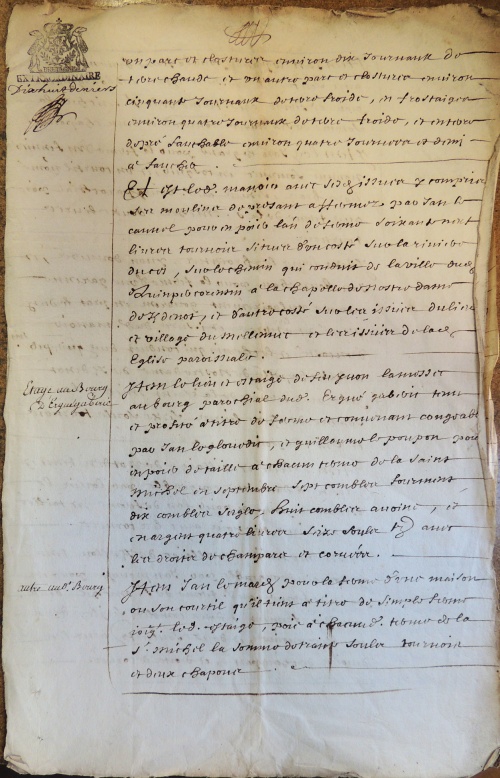 EXTRAORDINAIRE
Dixhuit deniers
un parc et closture environ dix Journaux de
terre chaude et un autre parc et closture environ
cinquante Journaux de terre froide, 
environ quatre Journaux de terre froide, et encore
de pré fauchable environ quatre Journeux et demi
a faucher .
Et led. manoir avec sesd. issues y compris
ses moulins de presant affermez par Jan le
cammel pour en poier l'an de ferme soixante neuf
livres tournois situez d'un costé sur la riviere
du , sur le chemin qui conduit de la ville de
Quinpercorentin a la chapelle de nostre dame
de Kdevot, et d'autre costé sur les issues du lieu
et village du Mellennec et les issues de lad.
Eglise paroissiale .
Etage au Bourg
d'Erguégaberic
Item le lieu et estaige de feu Yvon
au bourg parochial dud. Ergué gaberic tenu
et profité a titre de ferme et convenant congeable
par Jan le glouedic, et guillaume le poupon pour
en poier de taille a chacun terme de la saint
Michel en septembre sept combles fourment
dix combles seigle huit combles avoine, et
en argent quatre livres seize soulz avec
les droits de champart et corvées .
autre aud. Bourg
Item Jan le pour la ferme d'une maison
ou son courtil qu'il tient a titre de simple ferme
led. estaige, poie a chacun terme de la
St. Michel la somme de trante soulz tournois
et deux chapons .